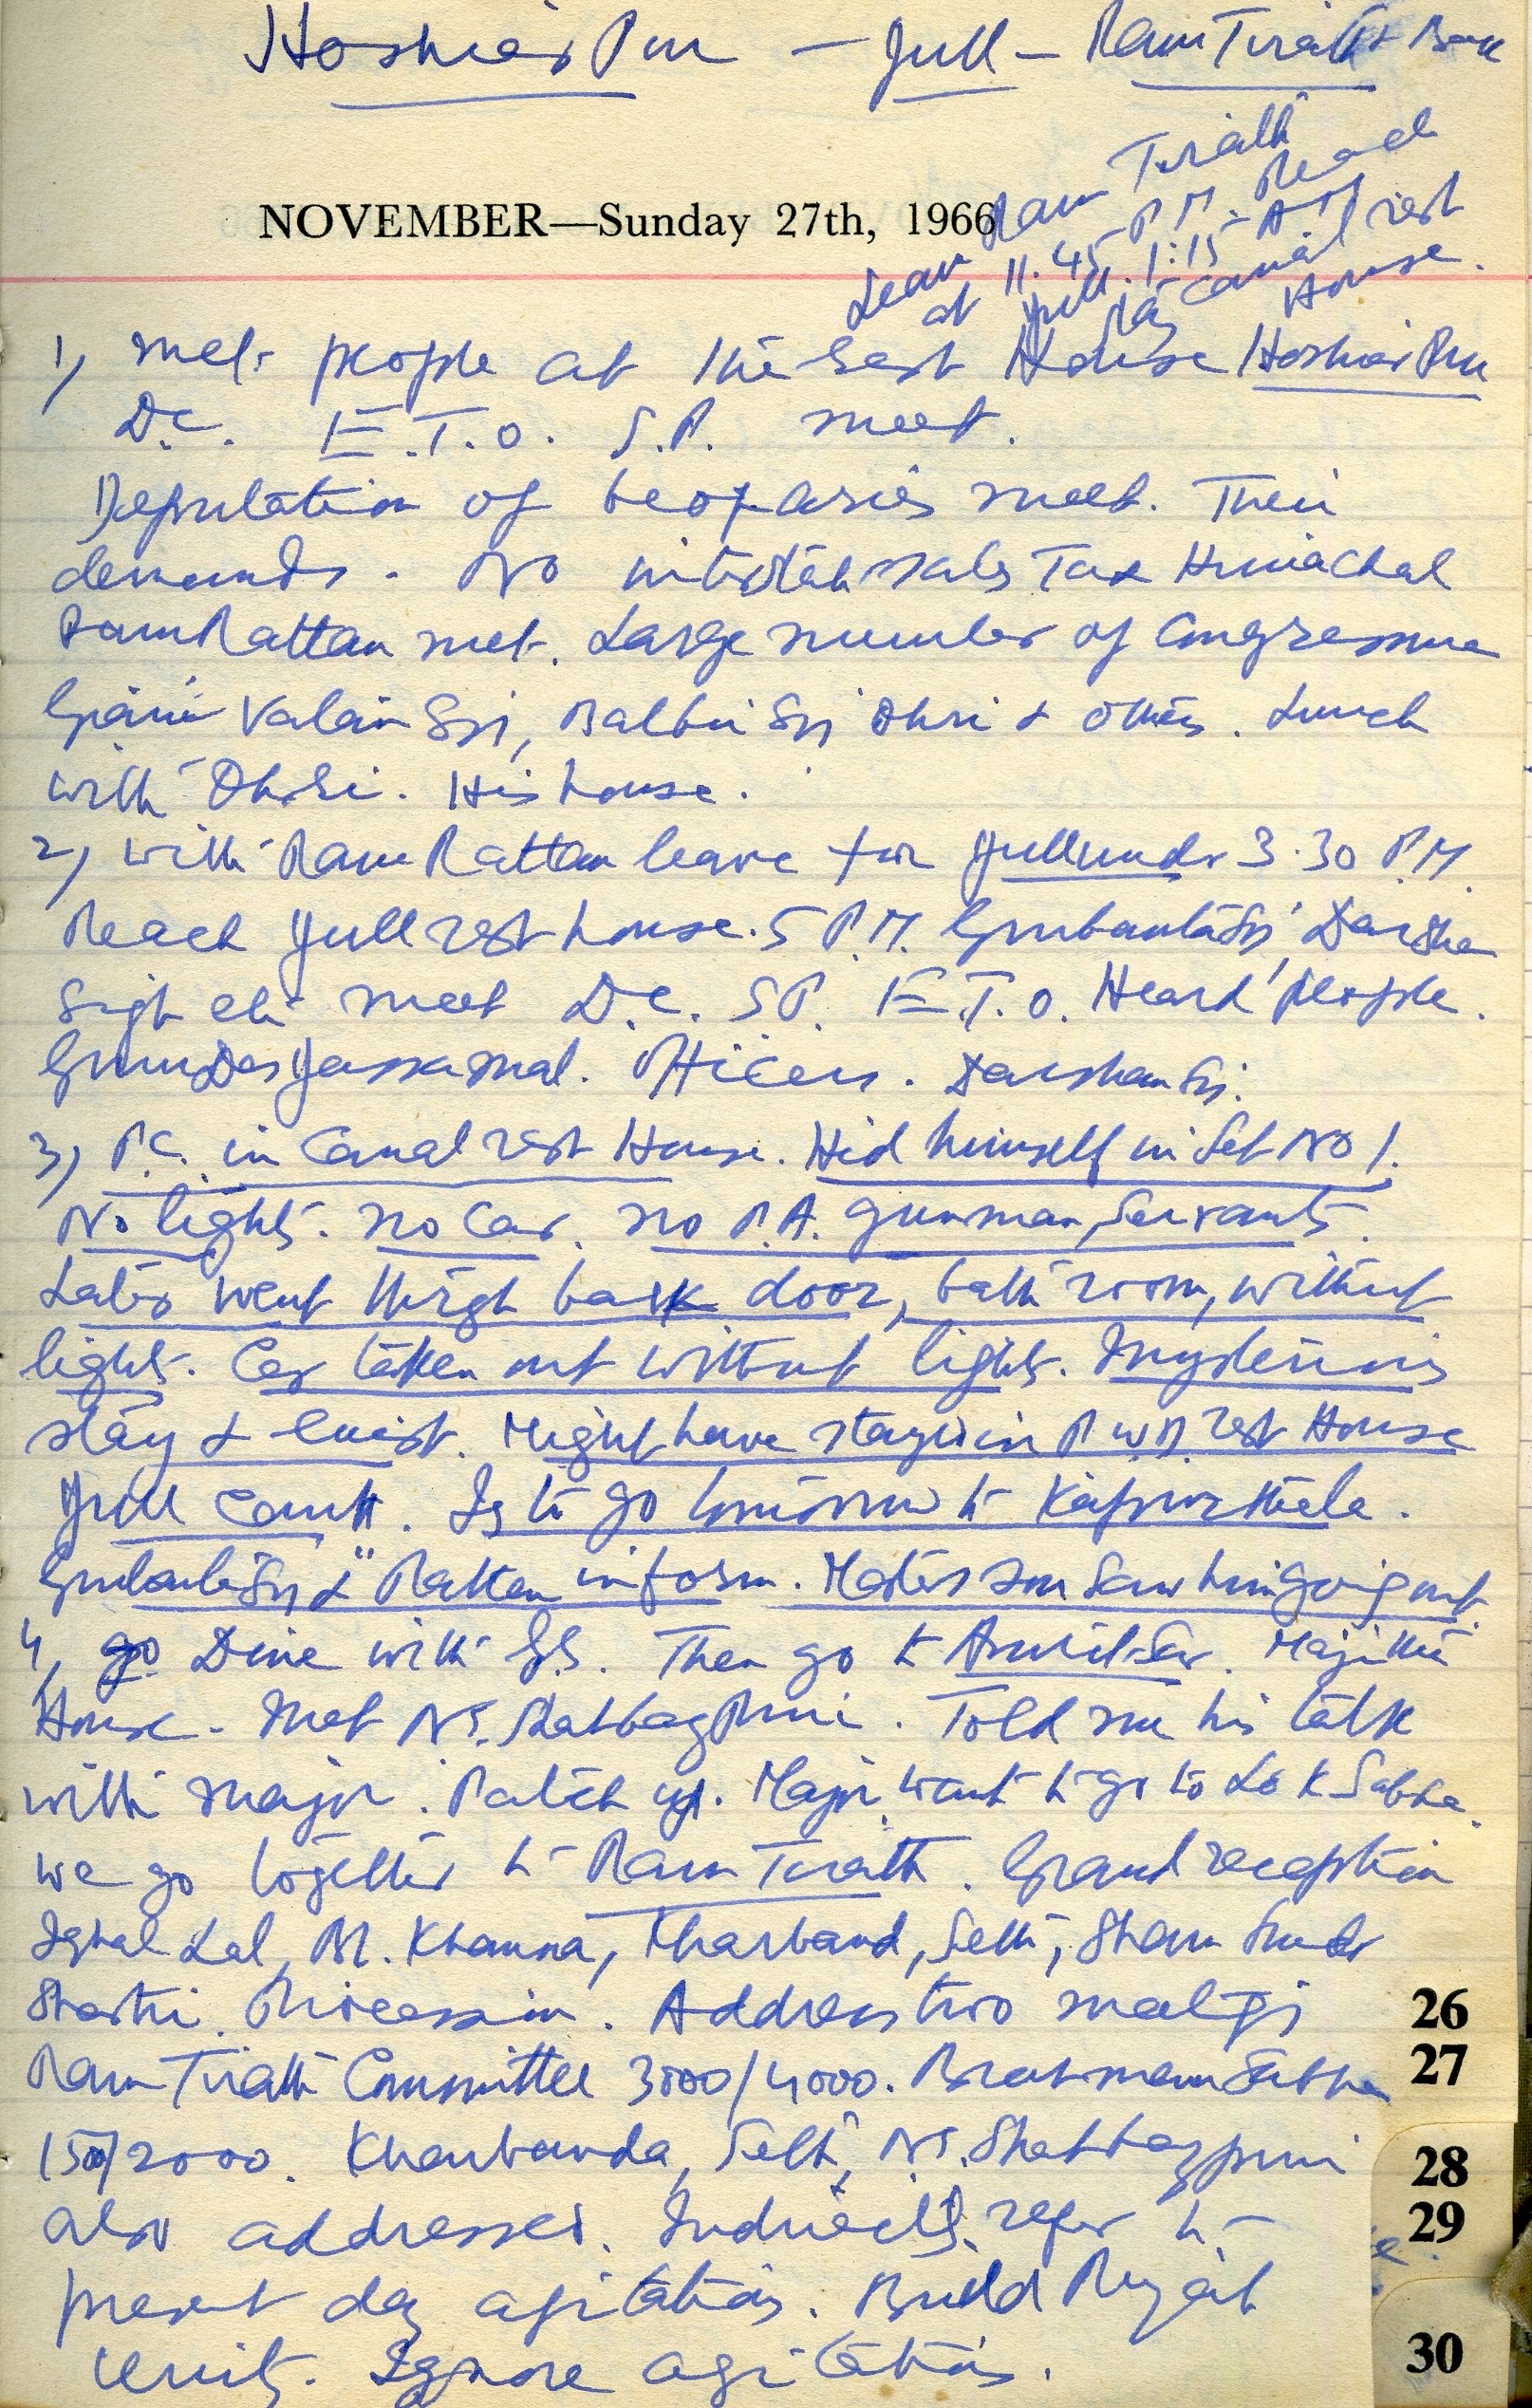 HoshiarPur — Jull — Ram Tirath & Back
NOVEMBER—Sunday 27th, 1966
Leave Ram Tirath
at 11.45 P.M. Reach
Jull. 1.15 A.M
Stay Canal rest
House.
1) Met people at the rest House HoshiarPur
D.C. E.T.O. S.P. meet.
Deputation of beoparies meet. Their
demands. No interstate sales Tax Himachal
RamRattan met. Large number of Congressmen
Giani Singh, Balbir Singh Ohri & others. Lunch
with Ohri. His house.
2) With Ram Rattan leave for Jullundr 3.30 P.M.
Reach Jull rest house. 5 P.M. Gurbanta Singh, Darshan
Singh etc meet D.C. S.P. E.T.O. Heard people.
Officers. Darshan Singh.
3) P.C. in Canal rest House. Hid himself in Set No 1.
No light. no Car. no P.A. gunman, Servants.
Later went through back door, bath room, without
light. Car taken out without light. Mysterious
stay & exit. Might have stayed in P.W.D. rest House
Jull Cantt. Is to go tomorrow to Kapurthala.
Gurbanta Singh & Rattan inform. son saw him going out.
4, go Dine with G.S. Then go to Amritsar. Majithia
House. Met N.S. Shahbazpuri. Told me his talk
with Major. Patch up. Major want to go to Lok Sabha.
we go together to Ram Tirath. Grand reception
Lal, Khanna, Kharband, Sethi, Sham Sunder
Shastri. Procession. Address two meetings
Ram Tirath Committee 3000/4000. Brahman Sabha
1500/2000. Kharbanda, Sethi, N.S. Shahbazpuri
also addresses. Indirectly refer to
present day agitations. Build Punjab
Unit. Ignore agitations.
26
27
28
29
30